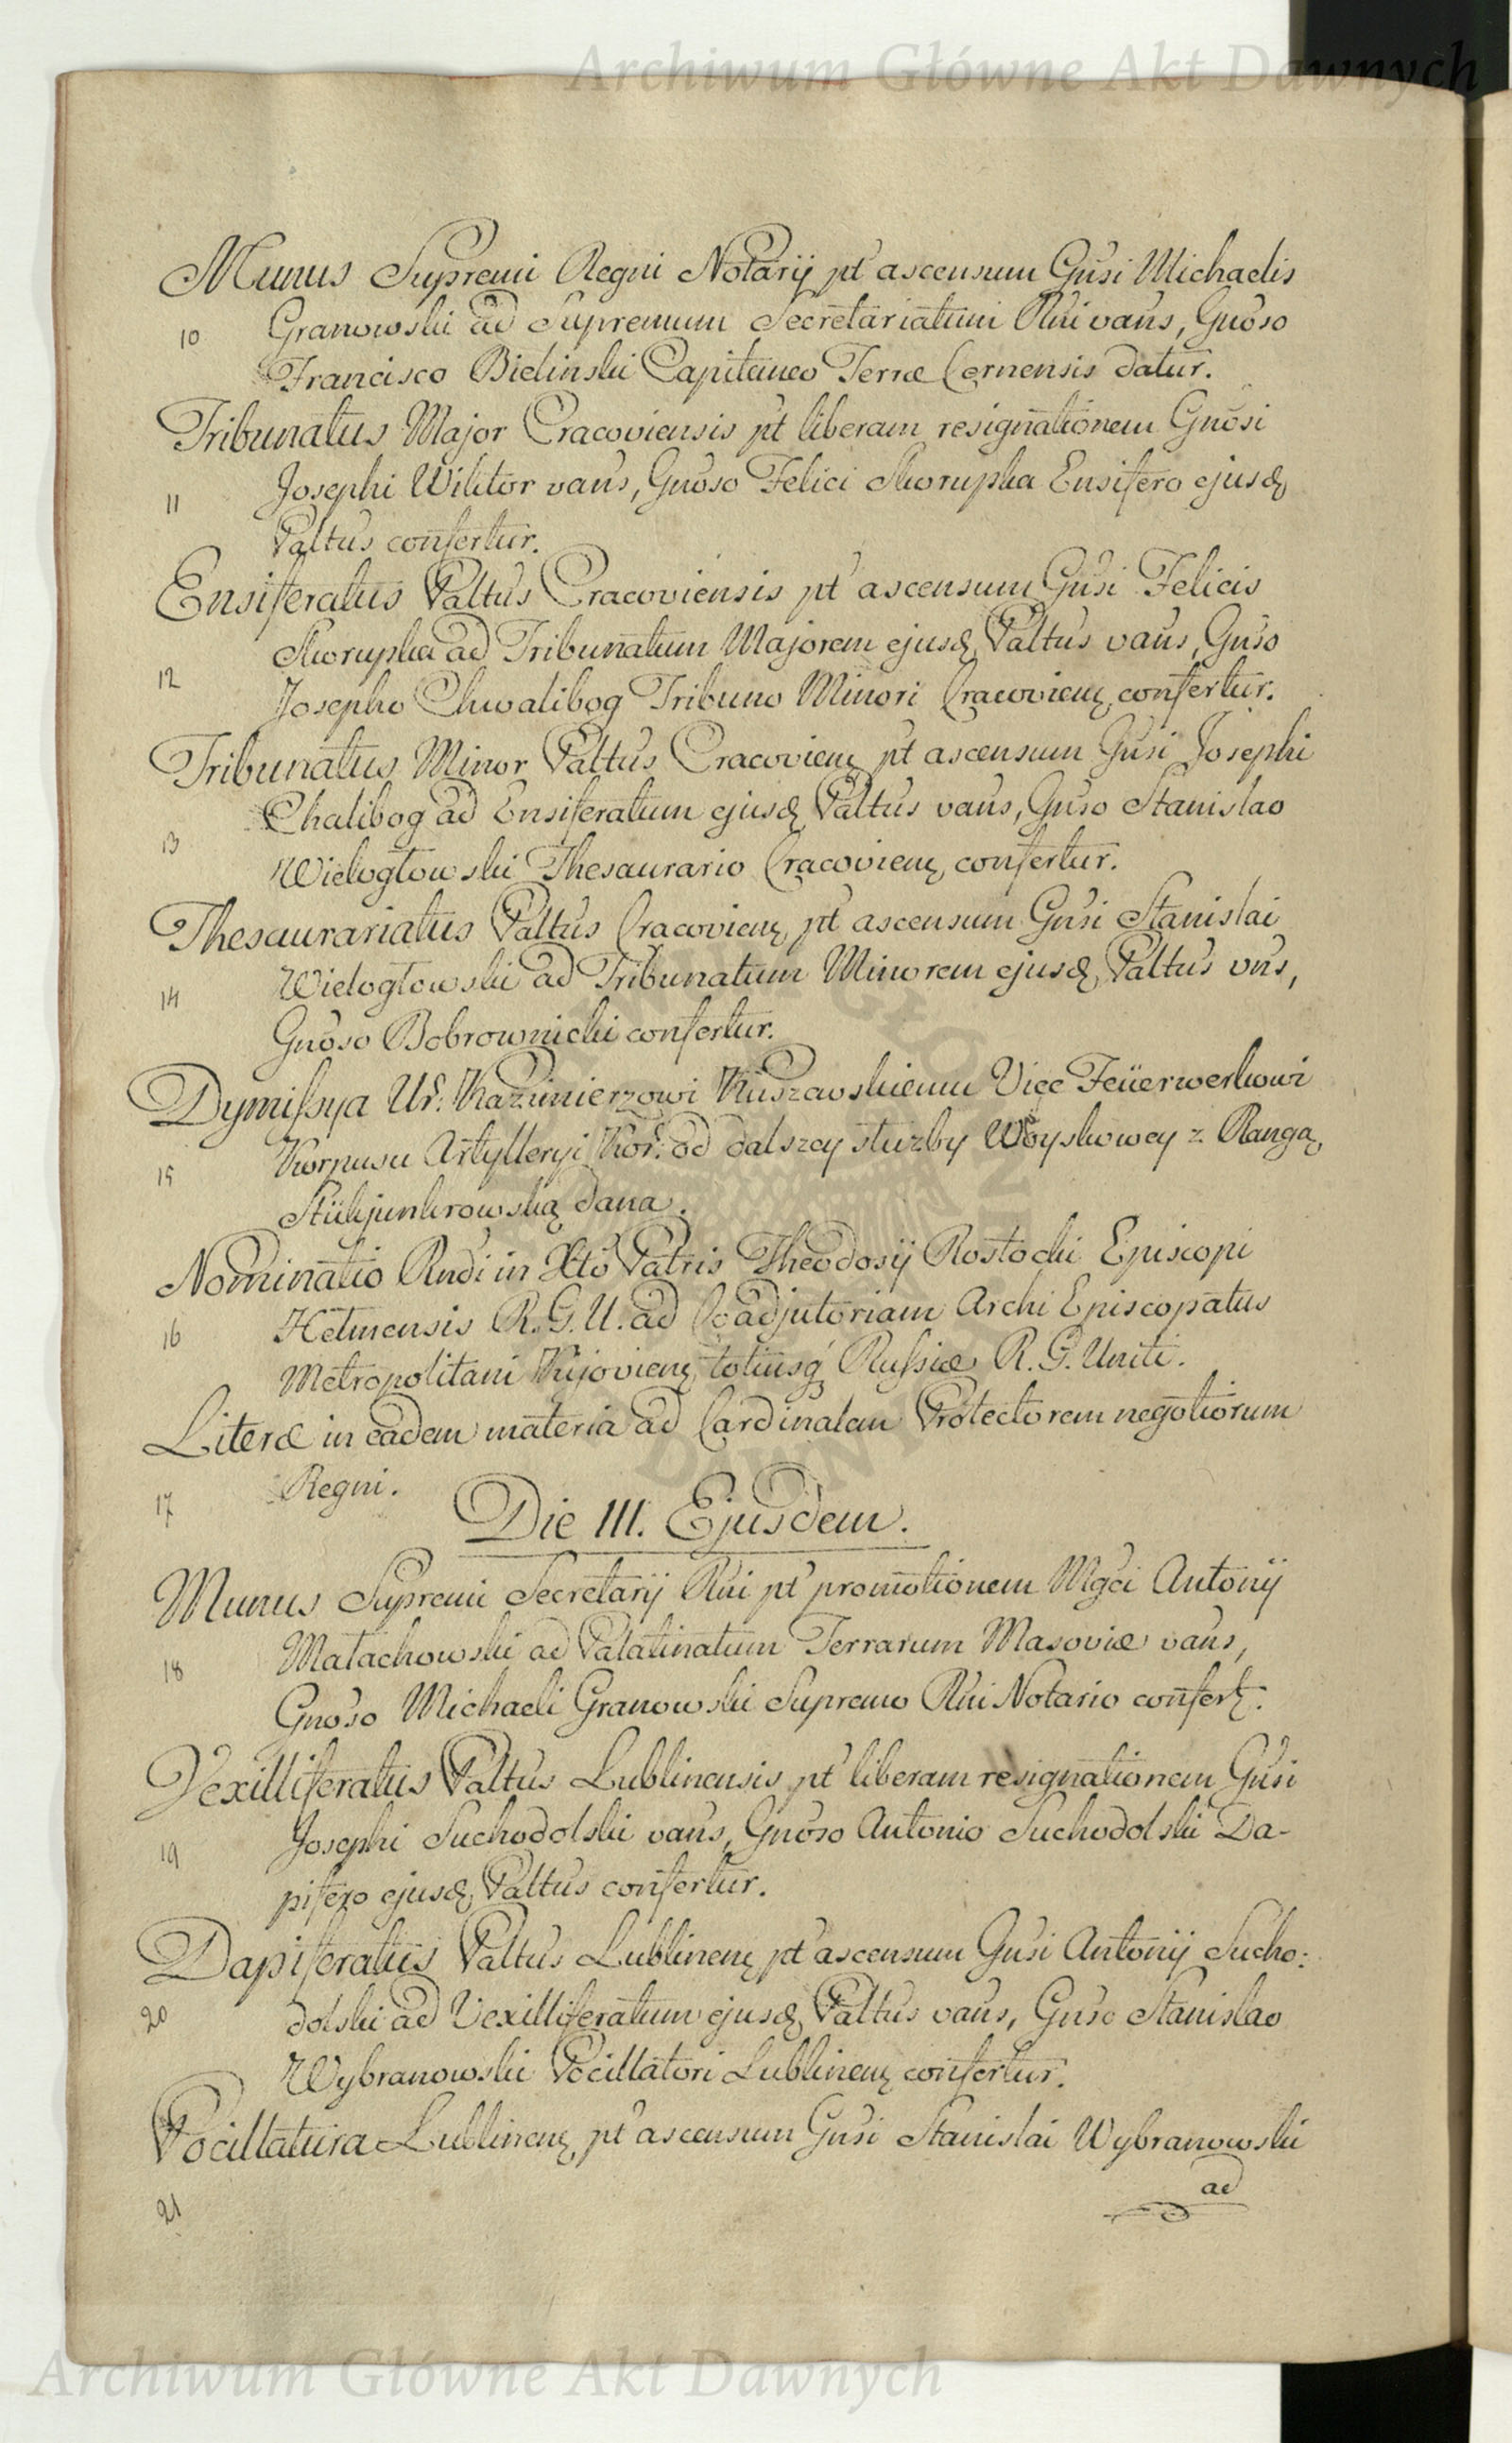 Archiwum Główne Akt Dawnych
Munus Supremi Regni Notarij pt ascensum Gnsi Michaelis
10 Granowski ad Supremum Secretariatum Rni vans, Gnoso
Francisco Bielinski Capitaneo Terræ Cernensis datur.
Tribunatus Major Cracoviensis pt liberam resignationem Gnosi
11 Josephi Wiktor vans, Gnoso Felici Skorupka Ensifero ejusd
Paltus confertur.
Ensiferatus Paltus Cracoviensis pt ascensum Gnsi Felicis
Skorupka ad Tribunatum Majorem ejusd Paltus vans, Gnso
12 Josepho Chwalibog Tribuno Minori Cracovien confertur.
Tribunatus Minor Paltus Cracovien pt ascensum Gnsi Josephi
Chalibog ad Ensiferatum ejusd Paltus vans, Gnso Stanislao
13 Wielogłowski Thesaurario Cracovien confertur.
Thesaurariatus Paltus Cracovien pt ascensum Gnsi Stanislai
14 Wielogłowski ad Tribunatum Minorem ejusd Paltus vns,
Gnoso Bobrownicki confertur.
Dymissya Ur: Kazimierzowi Kuszawskiemu Vice Feüerwerkowi
15 Korpusu Artylleryi Kor: od dalszey służby Woyskowey z Rangą
Stükjunkrowską dana.
Nominatio Rndi in Xto Patris Theodosij Rostocki Episcopi
16 Helmensis R. G. U. ad Coadjutoriam Archi Episcopatus
Metropolitani Kijovien totiusq Russiæ R. G. Uniti.
Literæ in eadem materia ad Cardinalem Protectorem negotiorum
17 Regni.
Die III. Ejusdem.
Munus Supremi Secretarij Rni pt promotionem Mgci Antonij
18 Małachowski ad Palatinatum Terrarum Masoviæ vans,
Gnoso Michaeli Granowski Supremo Rni Notario confert.
Vexilliferatus Paltus Lublinensis pt liberam resignationem Gnsi
19 Josephi Suchodolski vans, Gnoso Antonio Suchodolski Da-
pifero ejusd Paltus confertur.
Dapiferatus Paltus Lublinen pt ascensum Gnsi Antonij Sucho:
20 dolski ad Vexilliferatum ejusd Paltus vans, Gnso Stanislao
Wybranowski Pocillatori Lublinen confertur.
Pocillatura Lublinen pt ascensum Gnsi Stanislai Wybranowski
21 ad
Archiwum Główne Akt Dawnych